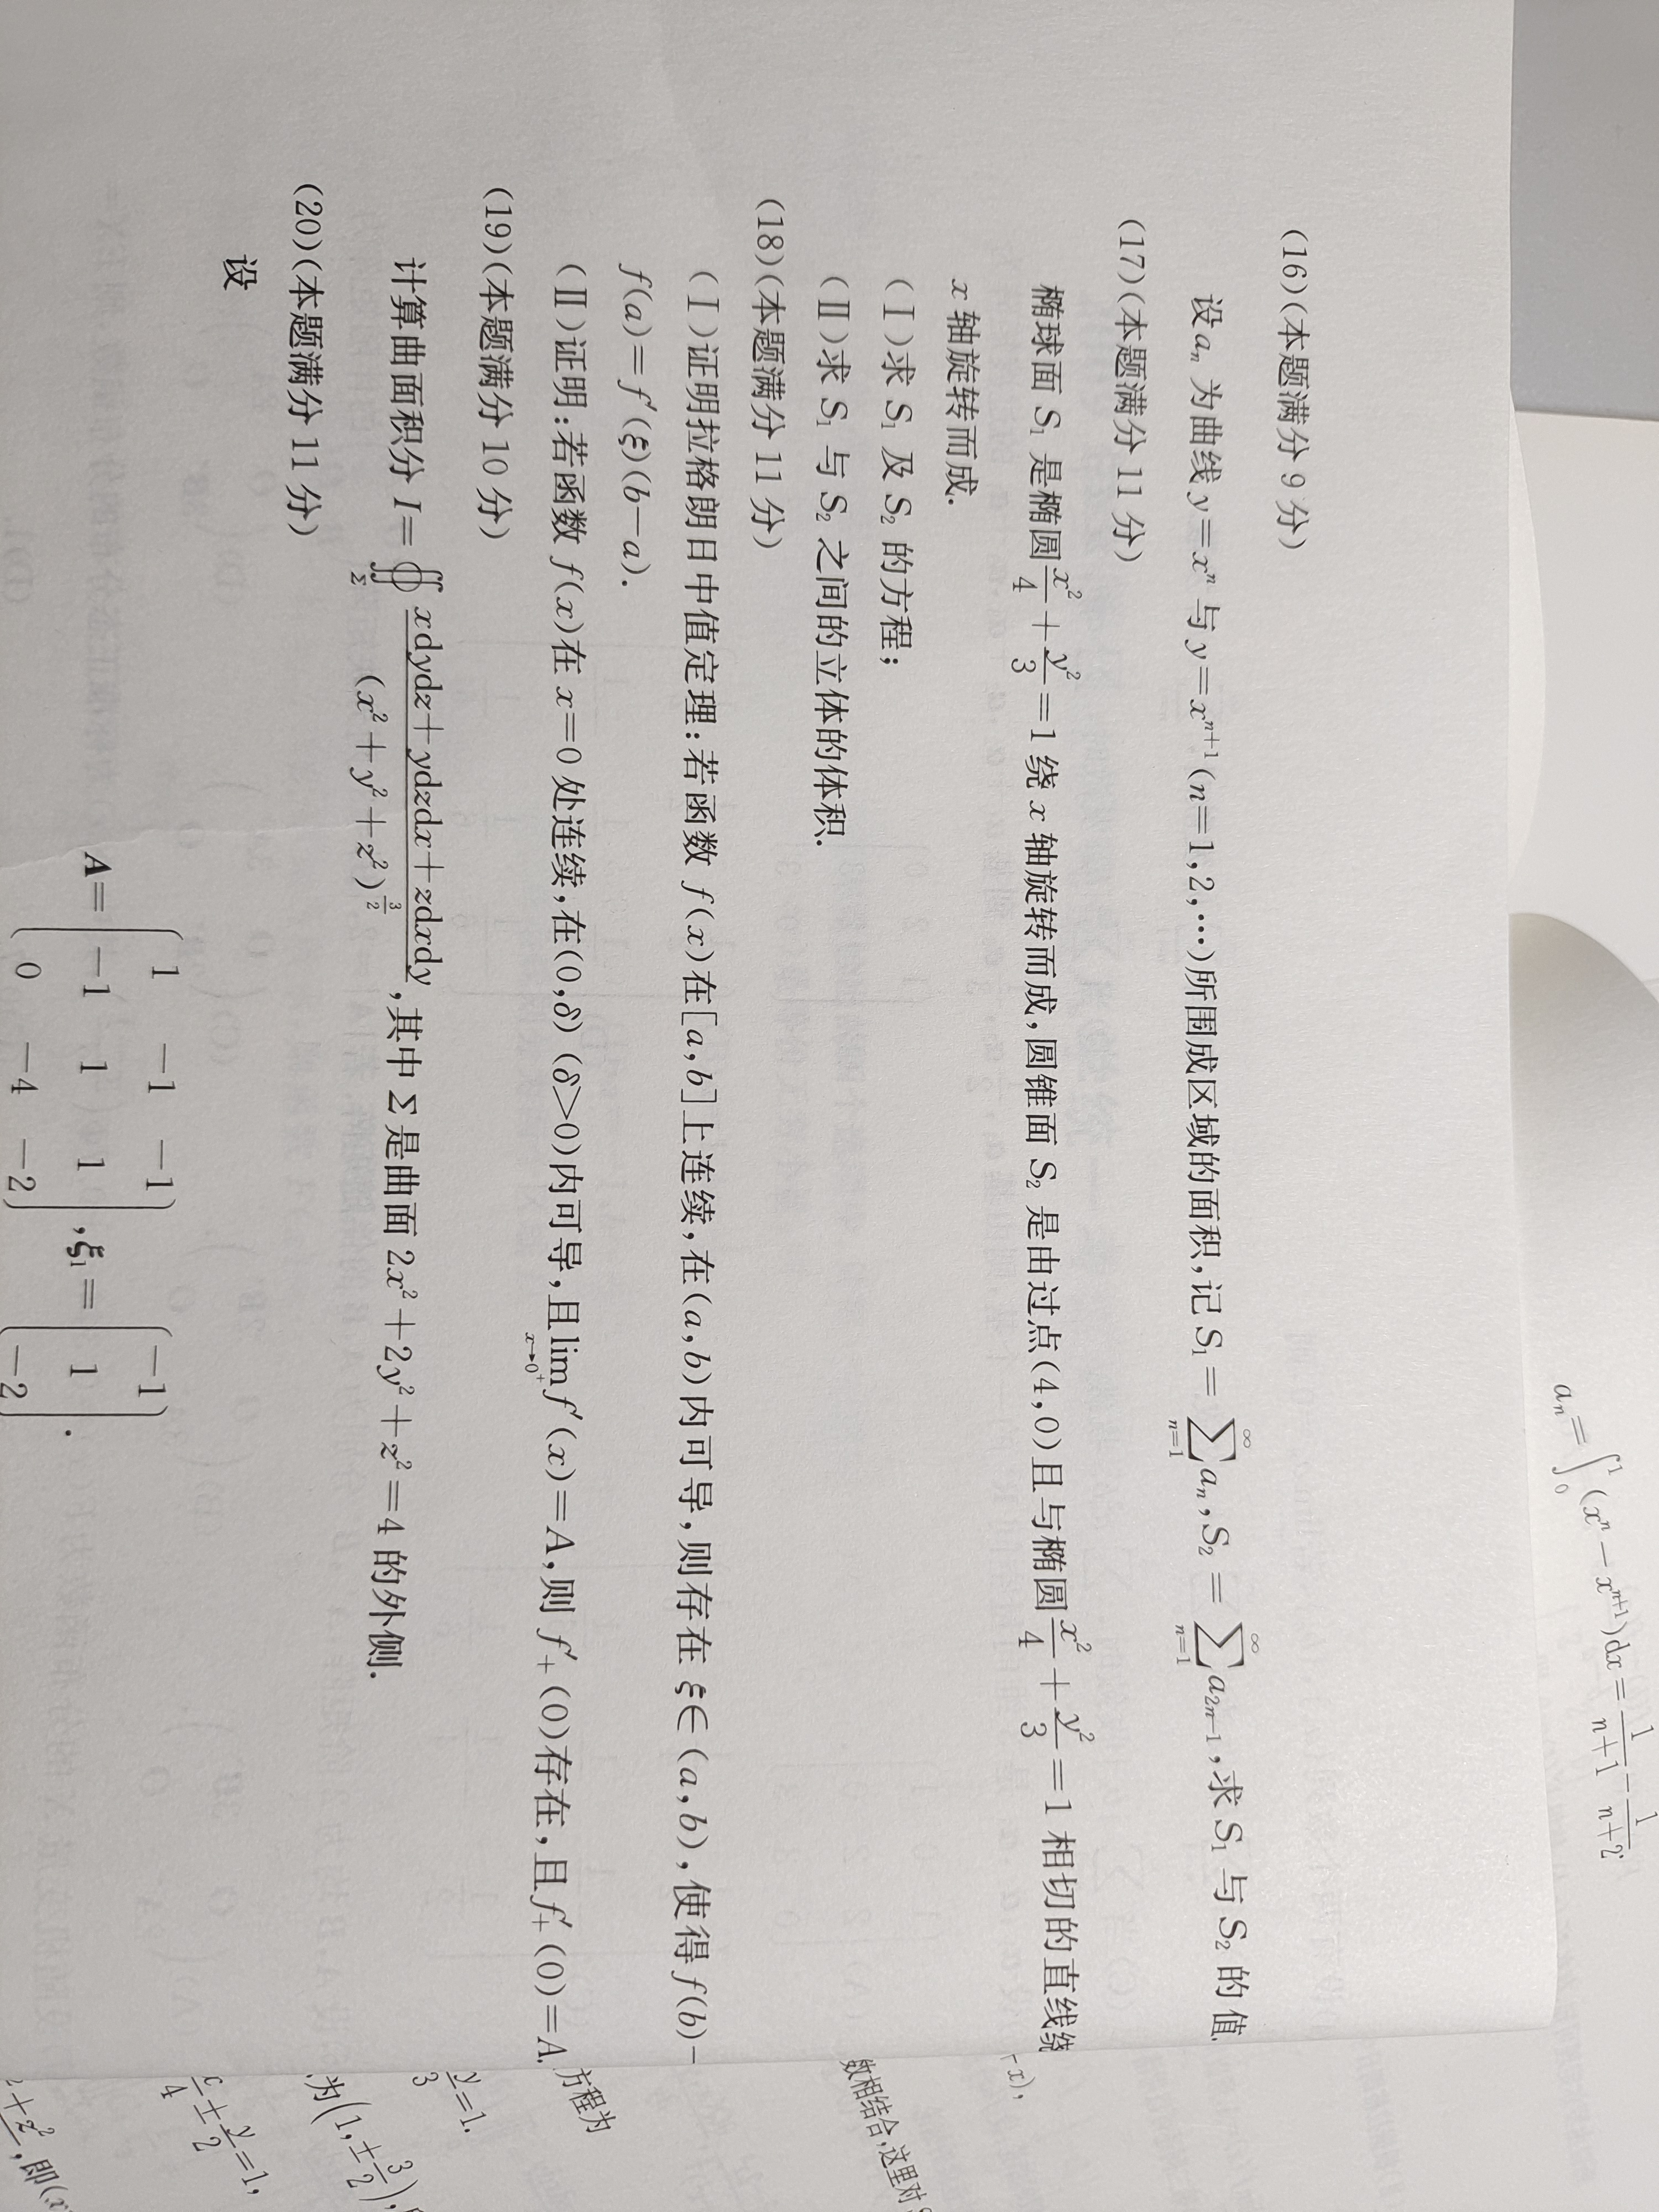 (16)(本题满分 9 分)
设 aₙ 为曲线 y=xⁿ 与 y=xⁿ⁺¹(n=1,2,…)所围成区域的面积,记 S₁ = ∑_{n=1}^{∞} aₙ, S₂ = ∑_{n=1}^{∞} a_{2n−1},求 S₁ 与 S₂ 的值.
(17)(本题满分 11 分)
椭球面 S₁ 是椭圆 x²/4 + y²/3 = 1 绕 x 轴旋转而成,圆锥面 S₂ 是由过点(4,0)且与椭圆 x²/4 + y²/3 = 1 相切的直线绕
x 轴旋转而成.
(Ⅰ)求 S₁ 及 S₂ 的方程;
(Ⅱ)求 S₁ 与 S₂ 之间的立体的体积.
(18)(本题满分 11 分)
(Ⅰ)证明拉格朗日中值定理:若函数 f(x)在[a,b]上连续,在(a,b)内可导,则存在 ξ∈(a,b),使得 f(b)−
f(a)=f′(ξ)(b−a).
(Ⅱ)证明:若函数 f(x)在 x=0 处连续,在(0,δ)(δ>0)内可导,且 lim_{x→0⁺} f′(x)=A,则 f′₊(0)存在,且 f′₊(0)=A.
(19)(本题满分 10 分)
计算曲面积分 I = ∯_Σ (xdydz+ydzdx+zdxdy)/(x²+y²+z²)^{3/2},其中 Σ 是曲面 2x²+2y²+z²=4 的外侧.
(20)(本题满分 11 分)
设
A = (1 −1 −1; −1 1 1; 0 −4 −2), ξ₁ = (−1; 1; −2).
aₙ = ∫₀¹ (xⁿ − xⁿ⁺¹)dx = 1/(n+1) − 1/(n+2)
−x),
数相结合,这里对
方程为
y/3 = 1.
为(1, ±3/2),
x/4 ± y/2 = 1,
+z²,即(x